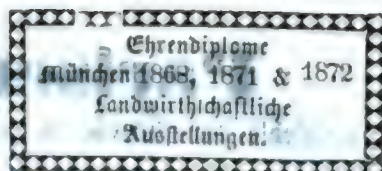 Ehrendiplome
München 1868, 1871 & 1872
Landwirthschaftliche
Ausstellungen.